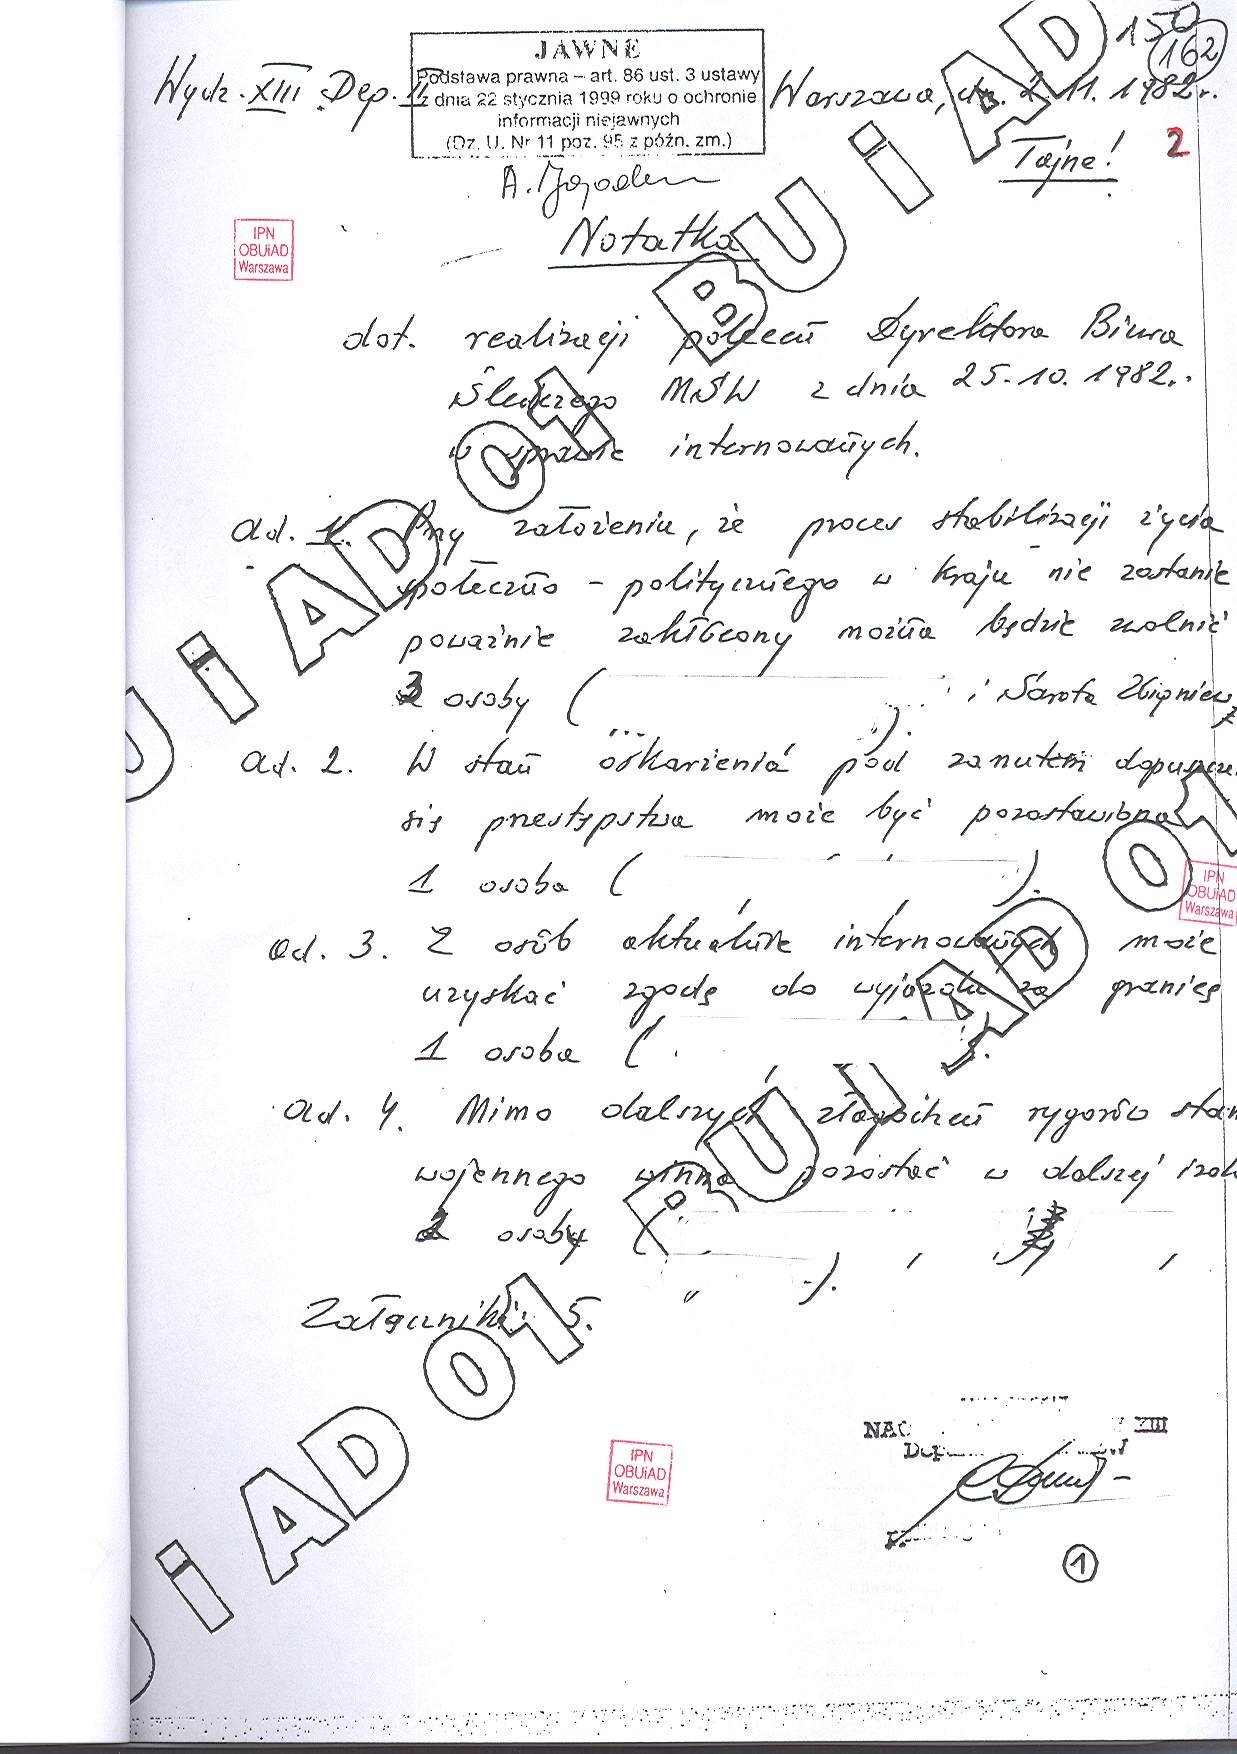 150
162
JAWNE
Podstawa prawna – art. 86 ust. 3 ustawy
z dnia 22 stycznia 1999 roku o ochronie
informacji niejawnych
(Dz. U. Nr 11 poz. 95 z późn. zm.)
Wydz. XIII Dep. II Warszawa, dn. 2 11. 1982 r.
Tajne! 2
Notatka
IPN
OBUiAD
Warszawa
dot. realizacji poleceń Dyrektora Biura
Śledczego MSW z dnia 25.10.1982 r.
w sprawie internowanych.
ad. 1. Przy założeniu, że proces stabilizacji życia
społeczno – politycznego w kraju nie zostanie
poważnie zakłócony można będzie zwolnić
3 osoby ( i Sarota Zbigniew
).
ad. 2. W stan oskarżenia pod zarzutem dopuszcz
się przestępstwa może być pozostawiona
1 osoba ( ).
IPN
OBUiAD
Warszawa
ad. 3. Z osób aktualnie internowanych może
uzyskać zgodę do wyjazdu za granicę
1 osoba ( ).
ad. 4. Mimo dalszych złagodzeń rygorów stan
wojennego winna pozostać w dalszej izol
2 osoby (
).
Załączniki: 5.
NAC XIII
IPN
OBUiAD
Warszawa
1
BU i AD 01
BU i AD 01
BU i AD 01
U i AD 01